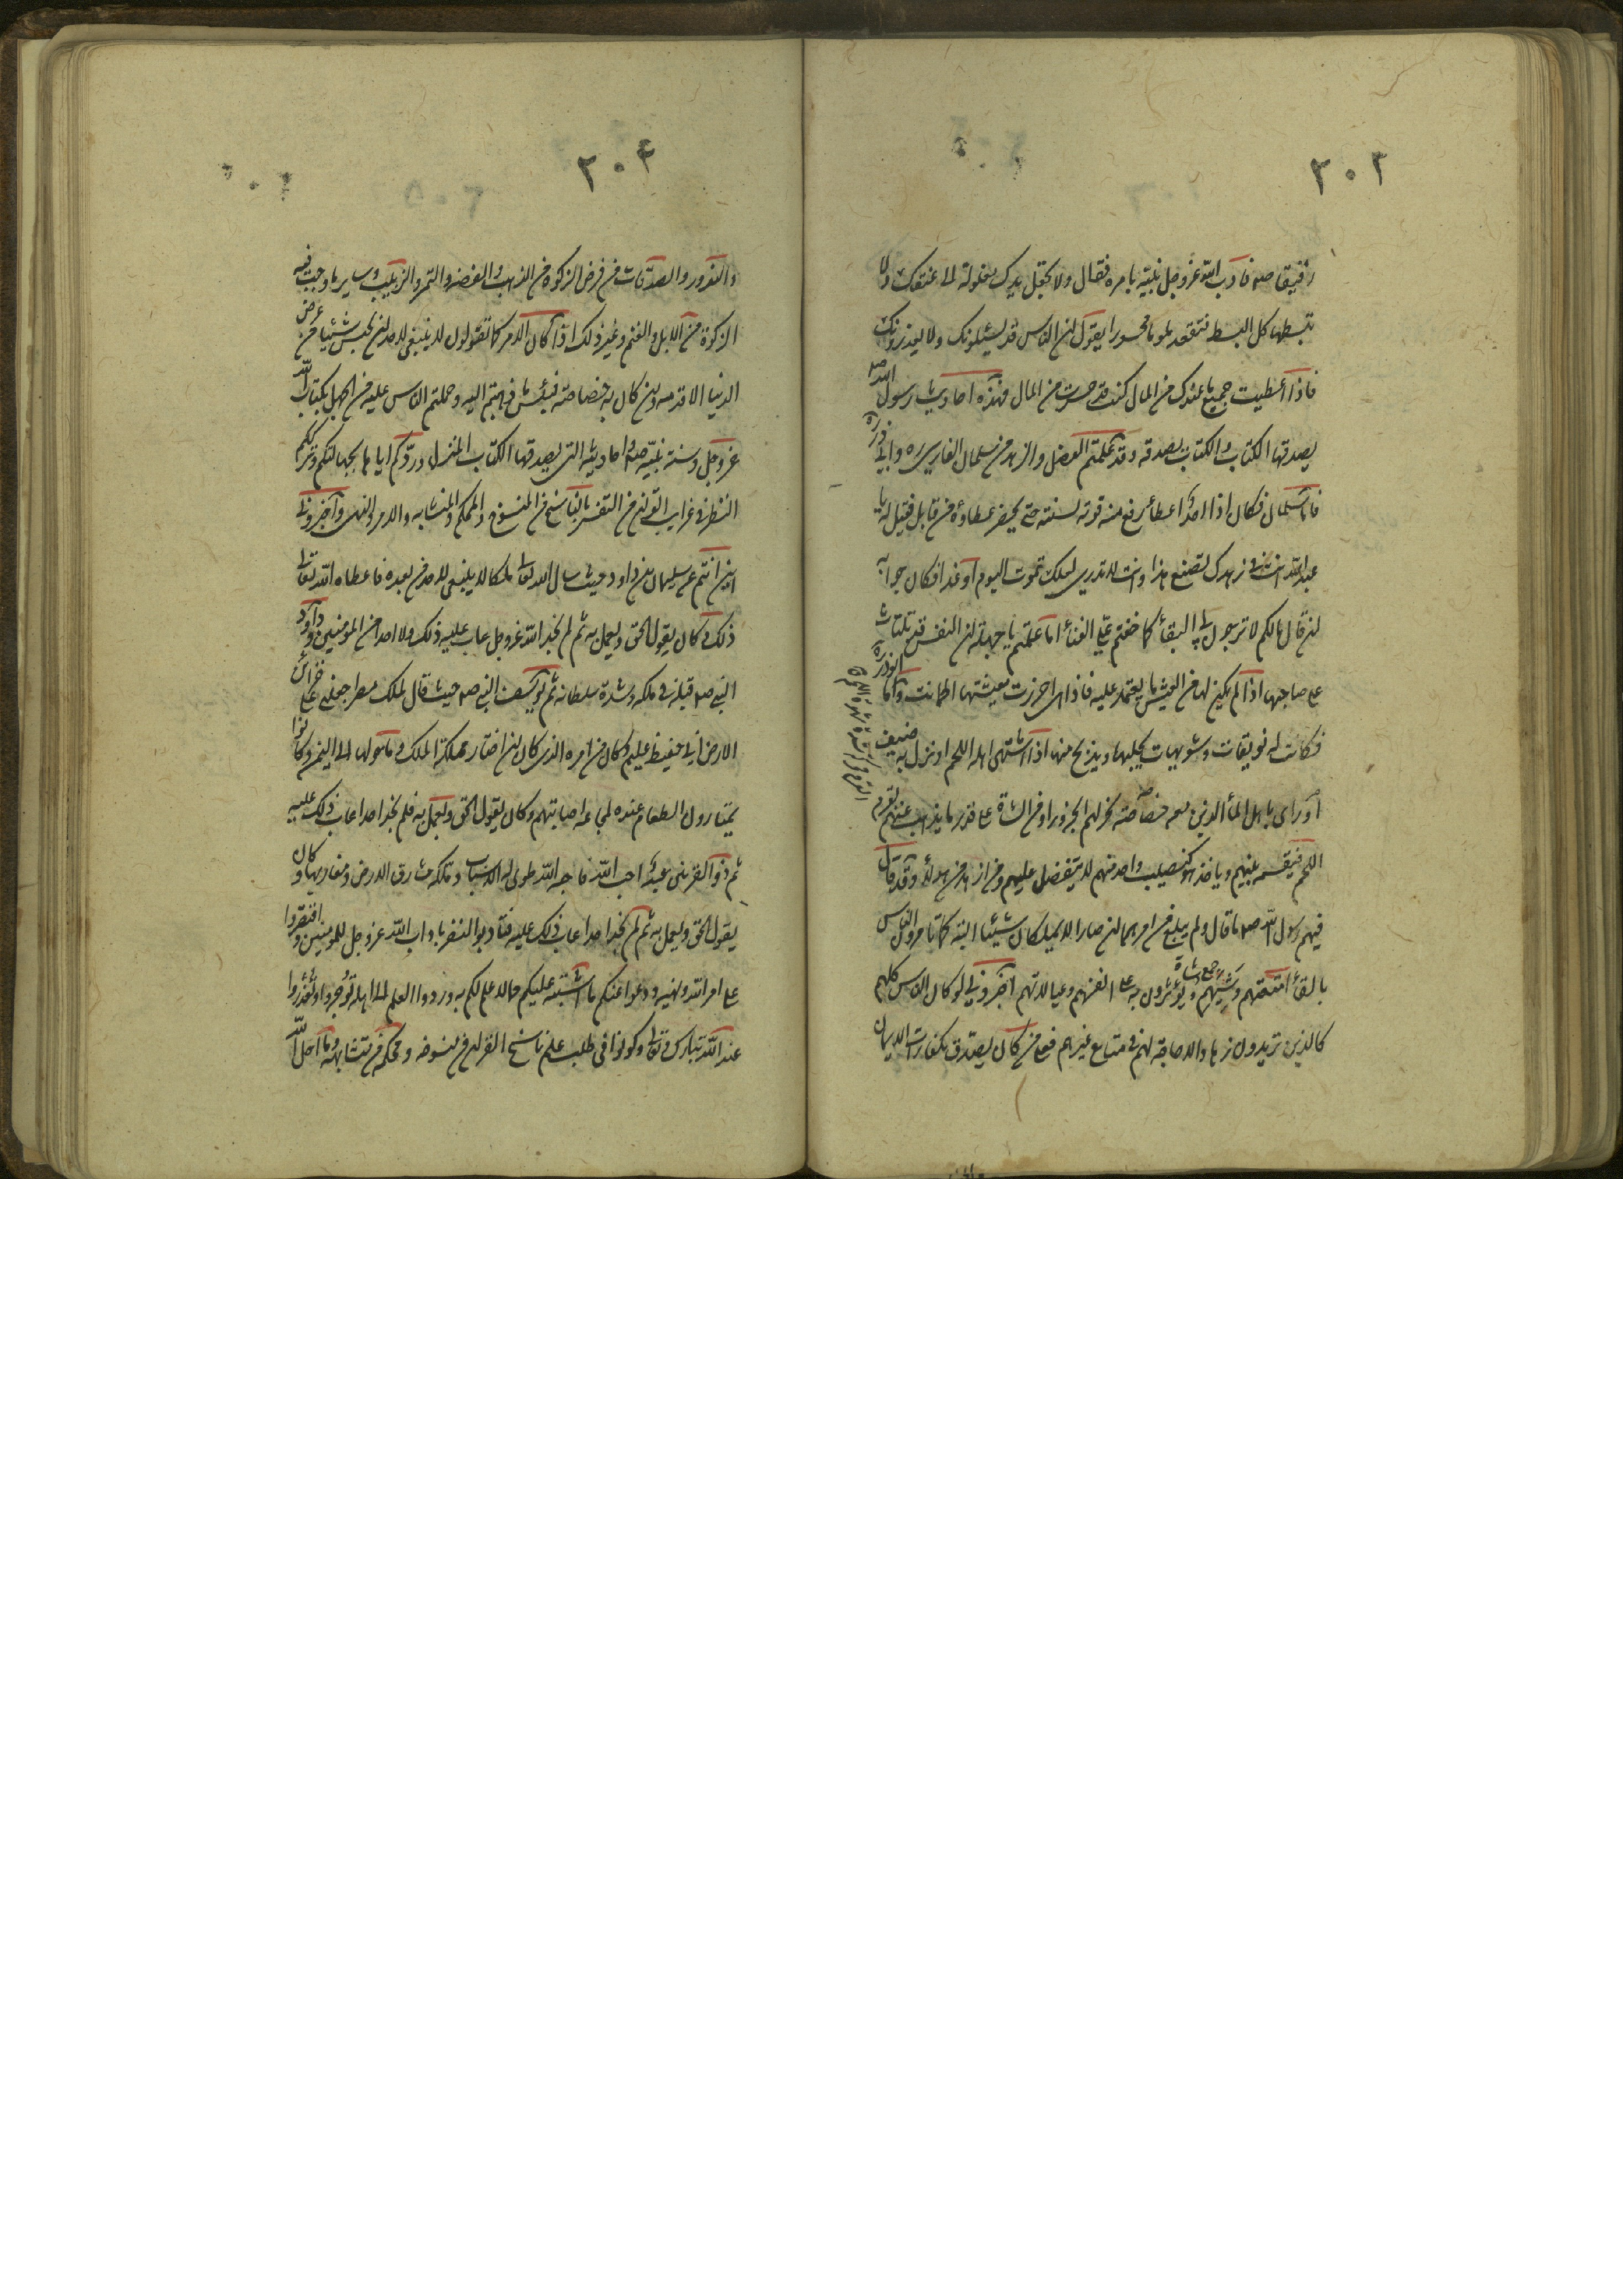 ٢٠٣
رفيقا صه فادب الله عز وجل نبيه بامره فقال ولا تجعل يدك مغلولة الى عنقك ولا
تبسطها كل البسط فتقعد ملوما محسورا يقول ان الناس قد يسئلونك ولا يعذرونك
فاذا اعطيت جميع ما عندك من المال كنت قد حسرت من المال فهذه احاديث رسول الله صه
يصدقها الكتاب والكتاب يصدقه وقد علمتم الفضل والزهد من سلمان الفارسي ره وابي ذر ره
فاما سلمان فكان اذا اخذ اعطاه رفع منه قوته لسنته حتى يحضر عطاؤه من قابل فقيل له يا
عبد الله انت في زهدك تصنع هذا وانت لا تدري لعلك تموت اليوم او غدا فكان جوابه
ان قال مالكم لا ترجون لي البقاء كما خفتم علي الفناء اما علمتم يا جهلة ان النفس قد تلتاث
على صاحبها اذا لم يكن لها من العيش ما يعتمد عليه فاذا هي احرزت معيشتها اطمانت واما ابوذر ره
فكانت له نويقات وشويهات يحلبها ويذبح منها اذا اشتهى اهله اللحم او نزل به ضيف
او راى باهل الماء الذين هم معه خصاصة نحر لهم الجزور او من الشاة على قدر ما يذهب عنهم بقرم
اللحم فيقسمه بينهم وياخذ هو كنصيب واحد منهم لا يتفضل عليهم ومن ازهد من هولاء وقد قال
فيهم رسول الله صه ما قال ولم يبلغ من امرهما ان صارا لا يملكان شيئا البتة كما تامرون الناس
بالقاء امتعتهم وشيئهم ويؤثرون به على انفسهم وعيالاتهم اخبروني لو كان الناس كلهم
كالذين تريدون زهادا لا حاجة لهم في متاع غيرهم فعلى من كان يصدق بكفارات الايمان
٢٠٤
والنذور والصدقات من فرض الزكوة من الذهب والفضة والتمر والزبيب وساير ما وجب فيه
الزكوة من الابل والغنم وغير ذلك اذا كان الامر كما تقولون لا ينبغي لاحد ان يحبس شيئا من عرض
الدنيا الا قدمه وان كان به خصاصة فبئس ما ذهبتم اليه وحملتم الناس عليه من الجهل بكتاب الله
عز وجل وسنة نبيه صه واحاديثه التي يصدقها الكتاب المنزل وردكم اياها بجهالتكم وترككم
النظر في غرايب القران من التفسير بالناسخ من المنسوخ والمحكم والمتشابه والامر والنهي واخبروني
اين انتم عن سليمان بن داود حيث سال الله تعالى ملكا لا ينبغي لاحد من بعده فاعطاه الله تعالى
ذلك وكان يقول الحق ويعمل به ثم لم نجد الله عز وجل عاب عليه ذلك ولا احدا من المؤمنين وداود
النبي صه قبله في ملكه وشدة سلطانه ثم يوسف النبي صه حيث قال لملك مصر اجعلني على خزائن
الارض اني حفيظ عليم فكان من امره الذي كان ان اختار مملكة الملك وما حولها الى اليمن وكانوا
يمتارون الطعام من عنده لمجاعة اصابتهم وكان يقول الحق ويعمل به فلم نجد احدا عاب ذلك عليه
ثم ذو القرنين عبد احب الله فاحبه الله طوى له الاسباب وملكه مشارق الارض ومغاربها وكان
يقول الحق ويعمل به ثم لم نجد احدا عاب ذلك عليه فتادبوا ايها النفر باداب الله عز وجل للمؤمنين واقتصروا
على امر الله ونهيه ودعوا عنكم ما اشتبه عليكم مما لا علم لكم به وردوا العلم الى اهله تؤجروا وتعذروا
عند الله تبارك وتعالى وكونوا في طلب علم ناسخ القران من منسوخه ومحكمه من متشابهه وما احل الله